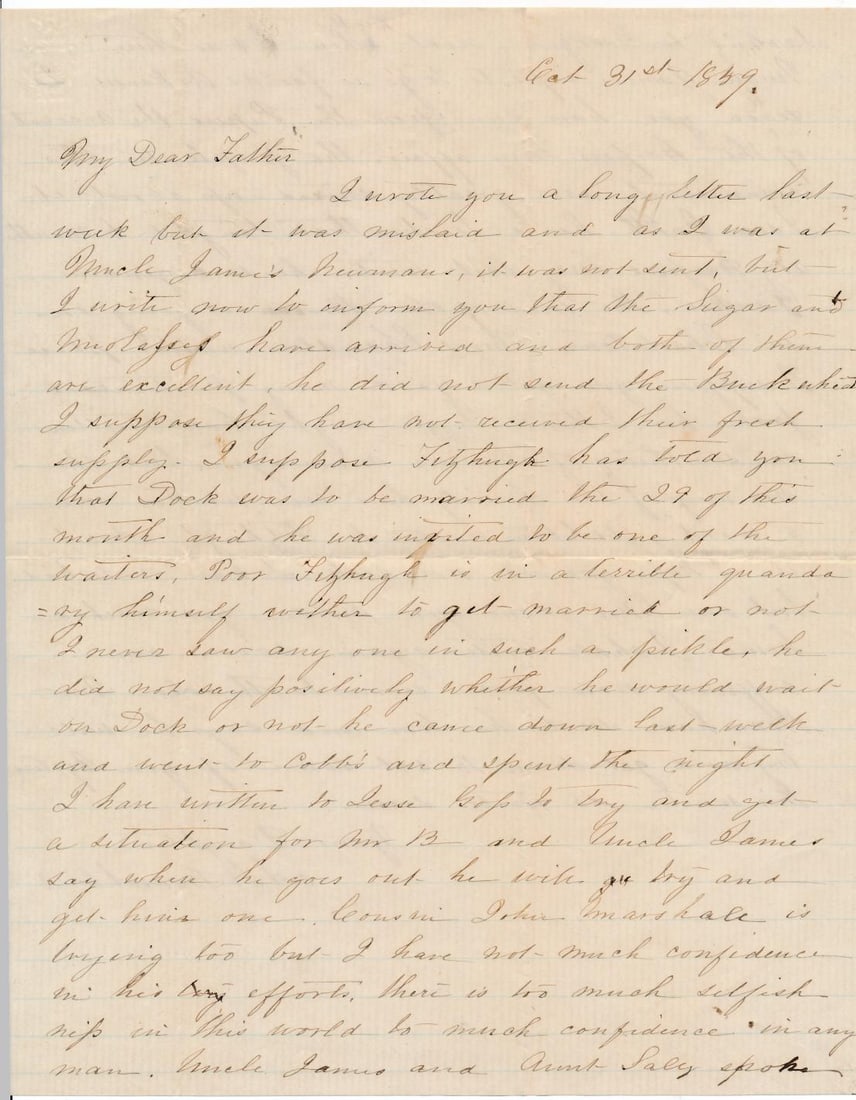 Oct 31st 1859.
My Dear Father
I wrote you a long letter last
week but it was mislaid and as I was at
Uncle James Newmans, it was not sent, but
I write now to inform you that the Sugar and
Molasses have arrived and both of them
are excellent, he did not send the Buckwheat
I suppose they have not received their fresh
supply. I suppose Fitzhugh has told you
that Dock was to be married the 29 of this
month and he was invited to be one of the
waiters, Poor Fitzhugh is in a terrible quanda
=ry himself wither to get married or not
I never saw any one in such a pickle, he
did not say positively whether he would wait
on Dock or not he came down last week
and went to Cobb's and spent the night
I have written to Jesse Goss to try and get
a situation for Mr B and Uncle James
say when he goes out he will try and
get him one. Cousin John Marshall is
trying too but I have not much confidence
in his efforts, there is too much selfish
ness in this world to much confidence in any
man. Uncle James and Aunt Sally spoke